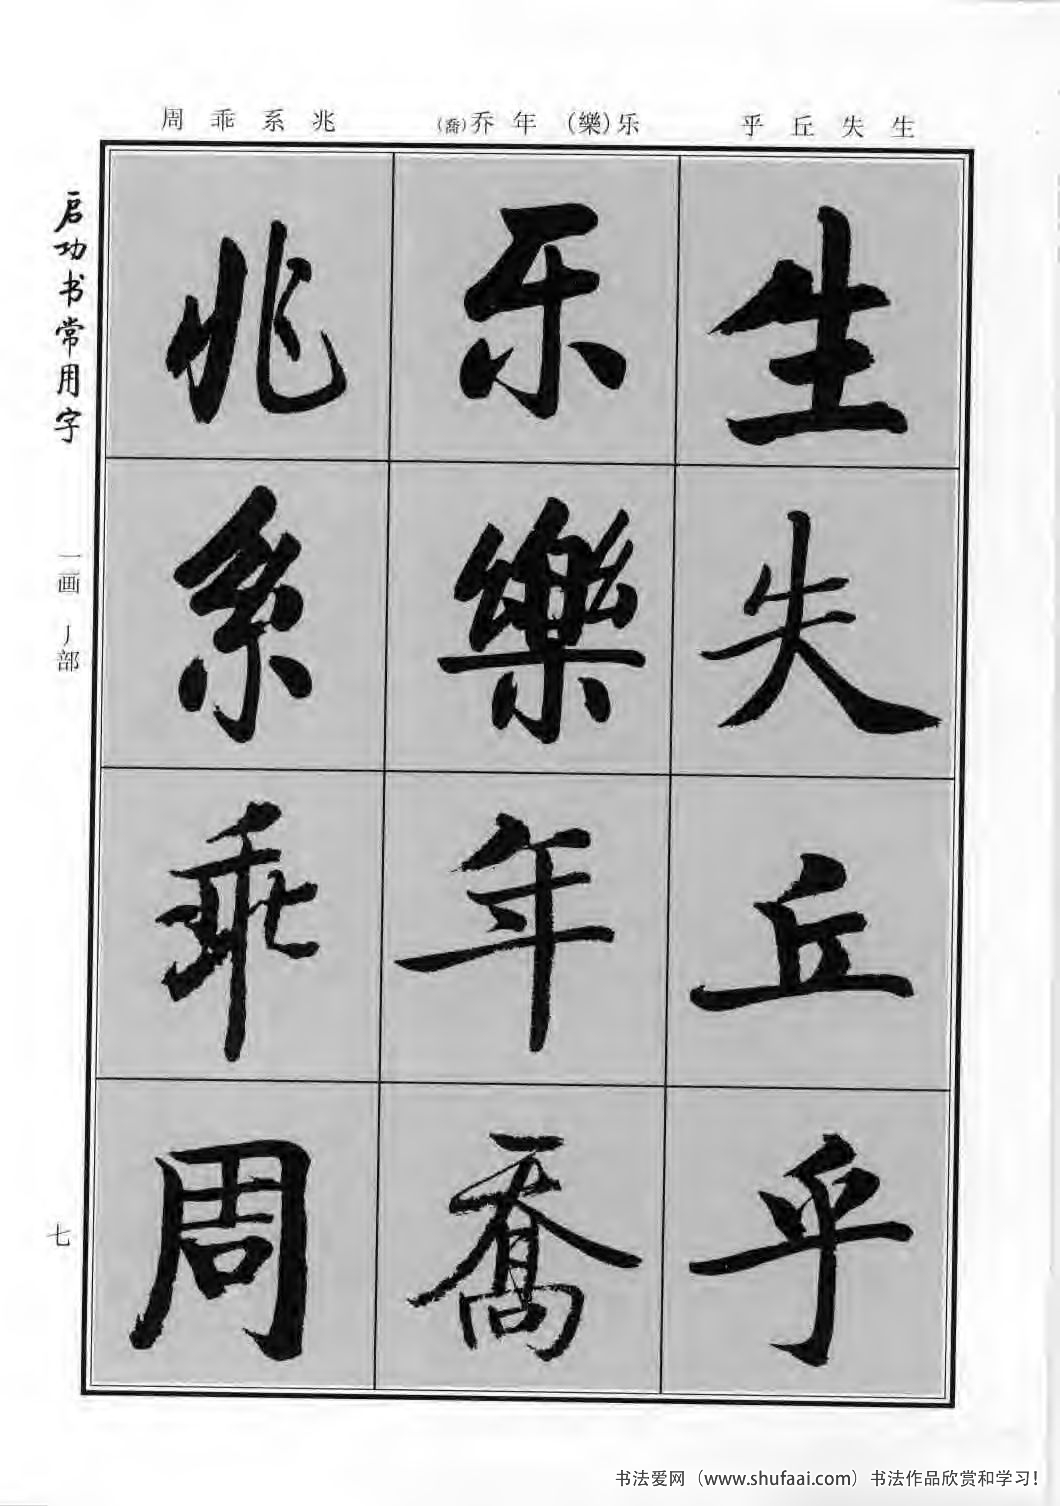 生失丘乎
乐(樂)年乔(喬)
兆系乖周
生
失
丘
乎
乐
樂
年
喬
兆
系
乖
周
启功书常用字
一画 丿部
七
书法爱网（www.shufaai.com）书法作品欣赏和学习！